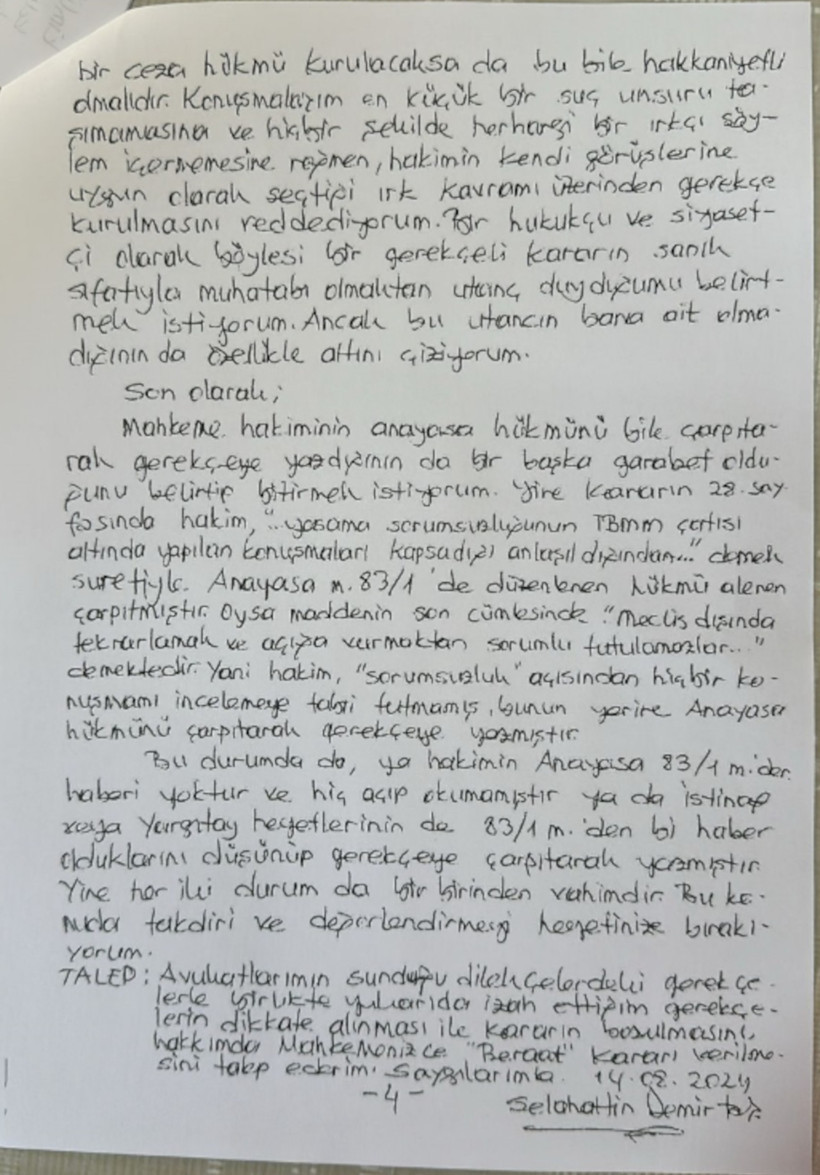 bir ceza hükmü kurulacaksa da bu bile hakkaniyetli
olmalıdır. Konuşmalarım en küçük bir suç unsuru ta-
şımamasına ve hiçbir şekilde herhangi bir ırkçı söy-
lem içermemesine rağmen, hakimin kendi görüşlerine
uygun olarak seçtiği ırk kavramı üzerinden gerekçe
kurulmasını reddediyorum. Bir hukukçu ve siyaset-
çi olarak böylesi bir gerekçeli kararın sanık
sıfatıyla muhatabı olmaktan utanç duyduğumu belirt-
mek istiyorum. Ancak bu utancın bana ait olma-
dığının da özellikle altını çiziyorum.
Son olarak;
Mahkeme hakiminin anayasa hükmünü bile çarpıta-
rak gerekçeye yazdığının da bir başka garabet oldu-
ğunu belirtip bitirmek istiyorum. Yine kararın 28. say
fasında hakim, "...yasama sorumsuzluğunun TBMM çatısı
altında yapılan konuşmaları kapsadığı anlaşıldığından..." demek
suretiyle Anayasa m. 83/1 'de düzenlenen hükmü alenen
çarpıtmıştır. Oysa maddenin son cümlesinde "Meclis dışında
tekrarlamak ve açığa vurmaktan sorumlu tutulamazlar..."
demektedir. Yani hakim, "sorumsuzluk" açısından hiçbir ko-
nuşmamı incelemeye tabi tutmamış, bunun yerine Anayasa
hükmünü çarpıtarak gerekçeye yazmıştır.
Bu durumda da, ya hakimin Anayasa 83/1 m.'den
haberi yoktur ve hiç açıp okumamıştır ya da istinap
veya Yargıtay heyetlerinin de 83/1 m.'den bi haber
olduklarını düşünüp gerekçeye çarpıtarak yazmıştır.
Yine her iki durum da bir birinden vahimdir. Bu ko-
nuda takdiri ve değerlendirmeyi heyetinize bırakı-
yorum.
TALEP : Avukatlarımın sunduğu dilekçelerdeki gerekçe-
lerle birlikte yukarıda izah ettiğim gerekçe-
lerin dikkate alınması ile kararın bozulmasını,
hakkımda Mahkemenizce "Beraat" kararı verilme-
sini talep ederim. Saygılarımla. 14.08.2024
-4-
Selahattin Demirtaş